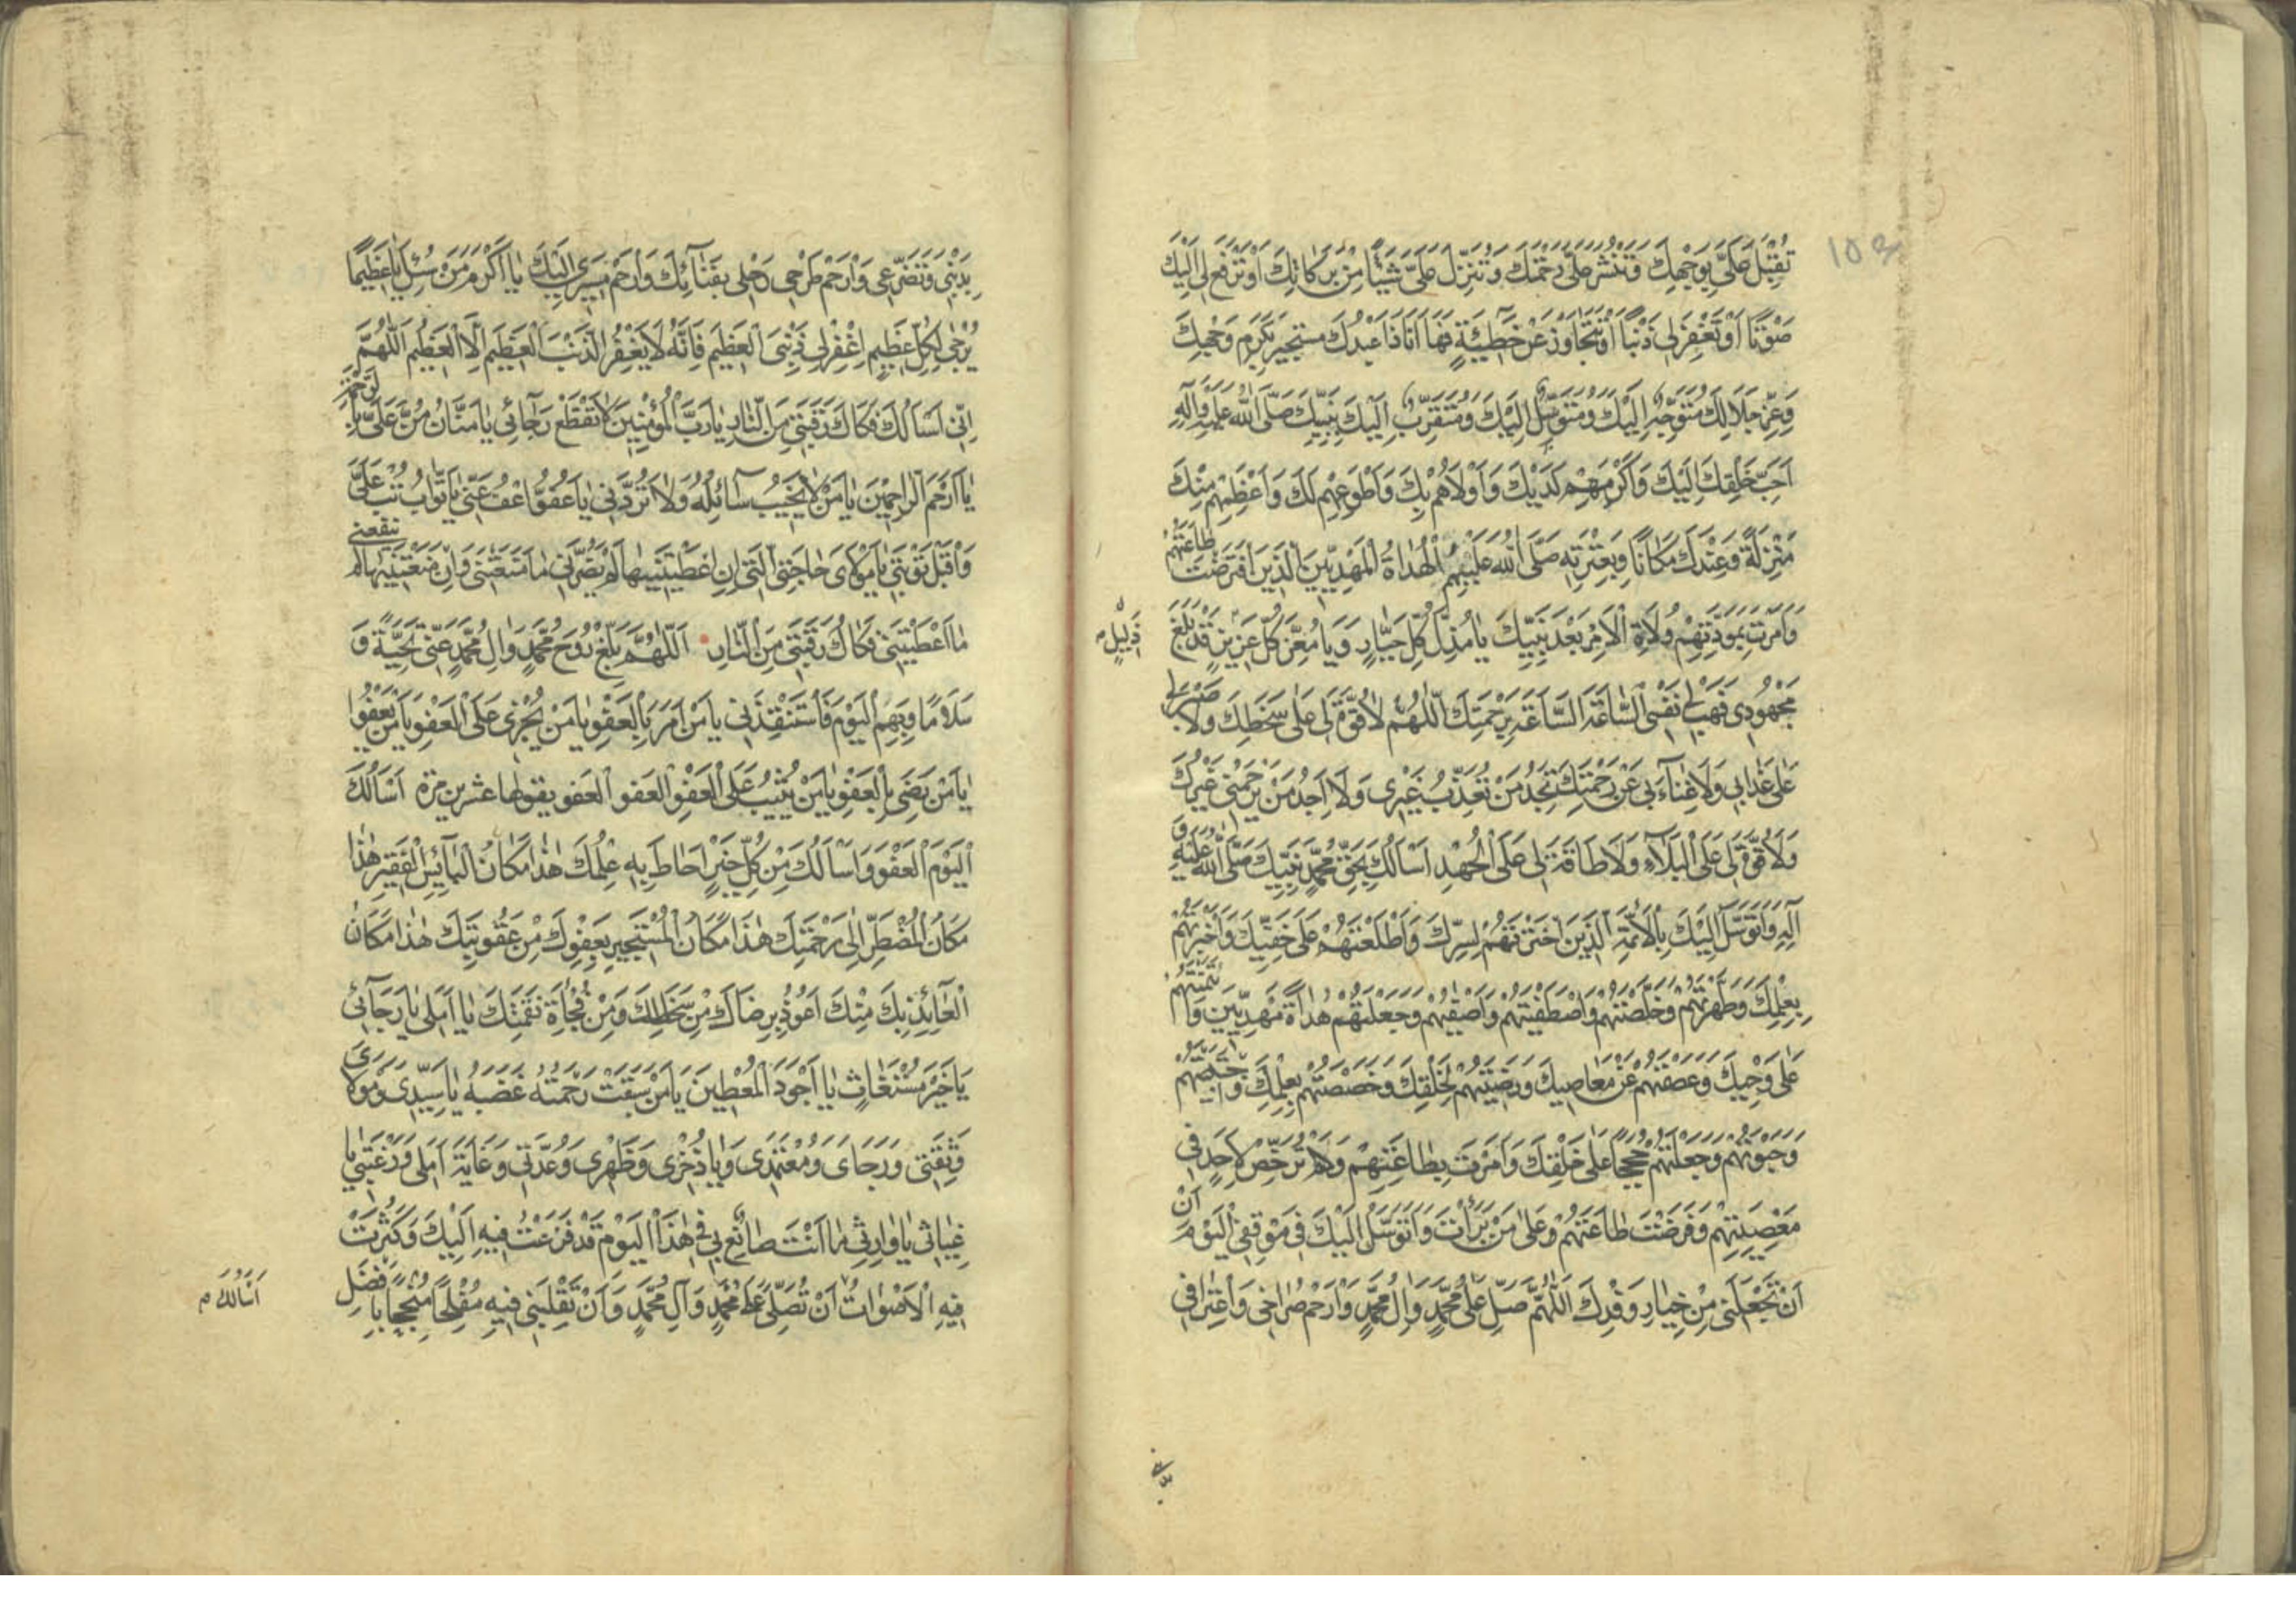 تُقْبِلَ عَلَيَّ بِوَجْهِكَ وَتَنْشُرَ عَلَيَّ رَحْمَتَكَ وَتُنَزِّلَ عَلَيَّ شَيْئًا مِنْ بَرَكَاتِكَ اَوْ تَرْفَعَ لِي اِلَيْكَ
صَوْتًا اَوْ تَغْفِرَ لِي ذَنْبًا اَوْ تَتَجَاوَزَ عَنْ خَطِيئَةٍ فَهَا اَنَا ذَا عَبْدُكَ مُسْتَجِيرٌ بِكَرَمِ وَجْهِكَ
وَعِزِّ جَلَالِكَ مُتَوَجِّهٌ اِلَيْكَ وَمُتَوَسِّلٌ اِلَيْكَ وَمُتَقَرِّبٌ اِلَيْكَ بِنَبِيِّكَ صَلَّى اللهُ عَلَيْهِ وَآلِهِ
اَحَبِّ خَلْقِكَ اِلَيْكَ وَاَكْرَمِهِمْ لَدَيْكَ وَاَوْلَاهُمْ بِكَ وَاَطْوَعِهِمْ لَكَ وَاَعْظَمِهِمْ مِنْكَ
مَنْزِلَةً وَعِنْدَكَ مَكَانًا وَبِعِتْرَتِهِ صَلَّى اللهُ عَلَيْهِمُ الْهُدَاةِ الْمَهْدِيِّينَ الَّذِينَ افْتَرَضْتَ طَاعَتَهُمْ
وَاَمَرْتَ بِمَوَدَّتِهِمْ وُلَاةِ الْاَمْرِ بَعْدَ نَبِيِّكَ يَا مُذِلَّ كُلِّ جَبَّارٍ وَيَا مُعِزَّ كُلِّ عَزِيزٍ قَدْ بَلَغَ
ذَلِيلٍ م
مَجْهُودِي فَهَبْ لِي نَفْسِي السَّاعَةَ السَّاعَةَ بِرَحْمَتِكَ اَللّٰهُمَّ لَا قُوَّةَ لِي عَلَى سَخَطِكَ وَلَا صَبْرَ لِي
عَلَى عَذَابِي وَلَا غِنَاءَ بِي عَنْ رَحْمَتِكَ تَجِدُ مَنْ تُعَذِّبُ غَيْرِي وَلَا اَجِدُ مَنْ يَرْحَمُنِي غَيْرَكَ
وَلَا قُوَّةَ لِي عَلَى الْبَلَاءِ وَلَا طَاقَةَ لِي عَلَى الْجُهْدِ اَسْاَلُكَ بِحَقِّ مُحَمَّدٍ نَبِيِّكَ صَلَّى اللهُ عَلَيْهِ وَ
آلِهِ وَاَتَوَسَّلُ اِلَيْكَ بِالْاَئِمَّةِ الَّذِينَ اخْتَرْتَهُمْ لِسِرِّكَ وَاَطْلَعْتَهُمْ عَلَى خَفِيِّكَ وَاَخْبَرْتَهُمْ
بِعِلْمِكَ وَطَهَّرْتَهُمْ وَخَلَّصْتَهُمْ وَاصْطَفَيْتَهُمْ وَاَصْفَيْتَهُمْ وَجَعَلْتَهُمْ هُدَاةً مَهْدِيِّينَ وَائْتَمَنْتَهُمْ
عَلَى وَحْيِكَ وَعَصَمْتَهُمْ عَنْ مَعَاصِيكَ وَرَضِيتَهُمْ لِخَلْقِكَ وَخَصَصْتَهُمْ بِعِلْمِكَ وَاجْتَبَيْتَهُمْ
وَحَبَوْتَهُمْ وَجَعَلْتَهُمْ حُجَجًا عَلَى خَلْقِكَ وَاَمَرْتَ بِطَاعَتِهِمْ وَلَمْ تُرَخِّصْ لِاَحَدٍ فِي
مَعْصِيَتِهِمْ وَفَرَضْتَ طَاعَتَهُمْ وَعَلَى مَنْ بَرَاْتَ وَاَتَوَسَّلُ اِلَيْكَ فِي مَوْقِفِي الْيَوْمَ اَنْ
اَنْ تَجْعَلَنِي مِنْ خِيَارِ وَفْدِكَ اَللّٰهُمَّ صَلِّ عَلَى مُحَمَّدٍ وَآلِ مُحَمَّدٍ وَارْحَمْ صُرَاخِي وَاعْتِرَافِي
بِذَنْبِي وَتَضَرُّعِي وَارْحَمْ طَرْحِي رَحْلِي بِفِنَائِكَ وَارْحَمْ مَسِيرِي اِلَيْكَ يَا اَكْرَمَ مَنْ سُئِلَ يَا عَظِيمًا
يُرْجَى لِكُلِّ عَظِيمٍ اِغْفِرْ لِي ذَنْبِيَ الْعَظِيمَ فَاِنَّهُ لَا يَغْفِرُ الذَّنْبَ الْعَظِيمَ اِلَّا الْعَظِيمُ اَللّٰهُمَّ
اِنِّي اَسْاَلُكَ فَكَاكَ رَقَبَتِي مِنَ النَّارِ يَا رَبَّ الْمُؤْمِنِينَ لَا تَقْطَعْ رَجَائِي يَا مَنَّانُ مُنَّ عَلَيَّ بِالرَّحْمَةِ
يَا اَرْحَمَ الرَّاحِمِينَ يَا مَنْ لَا يَخِيبُ سَائِلُهُ وَلَا تَرُدَّنِي يَا عَفُوُّ اعْفُ عَنِّي يَا تَوَّابُ تُبْ عَلَيَّ
وَاقْبَلْ تَوْبَتِي يَا مَوْلَايَ حَاجَتِي الَّتِي اِنْ اَعْطَيْتَنِيهَا لَمْ يَضُرَّنِي مَا مَنَعْتَنِي وَاِنْ مَنَعْتَنِيهَا لَمْ يَنْفَعْنِي
مَا اَعْطَيْتَنِي فَكَاكَ رَقَبَتِي مِنَ النَّارِ اَللّٰهُمَّ بَلِّغْ رُوحَ مُحَمَّدٍ وَآلِ مُحَمَّدٍ عَنِّي تَحِيَّةً وَ
سَلَامًا وَبِهِمُ الْيَوْمَ فَاسْتَنْقِذْنِي يَا مَنْ اَمَرَ بِالْعَفْوِ يَا مَنْ يَجْزِي عَلَى الْعَفْوِ يَا مَنْ يَعْفُو
يَا مَنْ رَضِيَ بِالْعَفْوِ يَا مَنْ يُثِيبُ عَلَى الْعَفْوِ الْعَفْوَ الْعَفْوَ يقولها عشرين مرة اَسْاَلُكَ
الْيَوْمَ الْعَفْوَ وَاَسْاَلُكَ مِنْ كُلِّ خَيْرٍ اَحَاطَ بِهِ عِلْمُكَ هٰذَا مَكَانُ الْبَائِسِ الْفَقِيرِ هٰذَا
مَكَانُ الْمُضْطَرِّ اِلَى رَحْمَتِكَ هٰذَا مَكَانُ الْمُسْتَجِيرِ بِعَفْوِكَ مِنْ عُقُوبَتِكَ هٰذَا مَكَانُ
الْعَائِذِ بِكَ مِنْكَ اَعُوذُ بِرِضَاكَ مِنْ سَخَطِكَ وَمِنْ فُجْاَةِ نَقِمَتِكَ يَا اَمَلِي يَا رَجَائِي
يَا خَيْرَ مُسْتَغَاثٍ يَا اَجْوَدَ الْمُعْطِينَ يَا مَنْ سَبَقَتْ رَحْمَتُهُ غَضَبَهُ يَا سَيِّدِي وَمَوْلَايَ
وَثِقَتِي وَرَجَاى وَمُعْتَمَدِي وَيَا ذُخْرِي وَظَهْرِي وَعُدَّتِي وَغَايَةَ اَمَلِي وَرَغْبَتِي يَا
غِيَاثِي يَا وَارِثِي مَا اَنْتَ صَانِعٌ بِي فِي هٰذَا الْيَوْمِ قَدْ فَزِعْتُ فِيهِ اِلَيْكَ وَكَثُرَتْ
فِيهِ الْاَصْوَاتُ اَنْ تُصَلِّيَ عَلَى مُحَمَّدٍ وَآلِ مُحَمَّدٍ وَاَنْ تَقْلِبَنِي فِيهِ مُفْلِحًا مُنْجِحًا بِاَفْضَلِ
اَسْاَلُكَ م